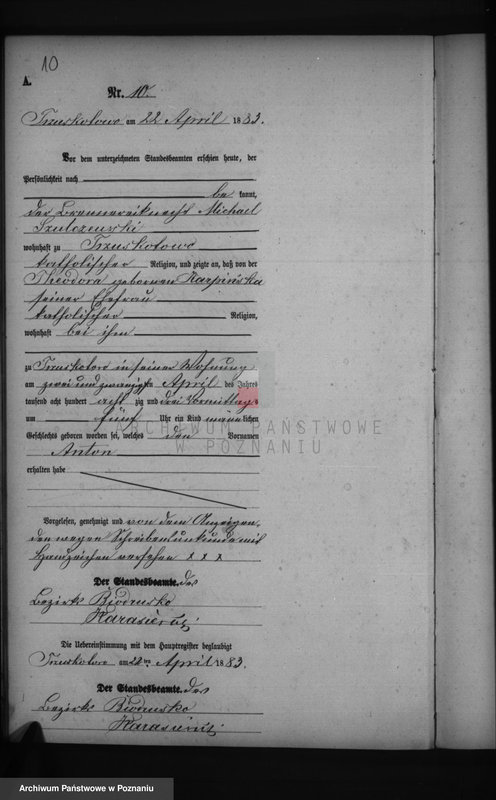 10
A.
Nr. 10.
Truskotowo am 22 April 1883.
Vor dem unterzeichneten Standesbeamten erschien heute, der
Persönlichkeit nach
be kannt,
der Brennereiknecht Michael
Szulczewski
wohnhaft zu Truskotowo
katholischer Religion, und zeigte an, daß von der
Theodora geborenen Karpińska
seiner Ehefrau
katholischer Religion,
wohnhaft bei ihm
zu Truskotowo in seiner Wohnung
am zwei und zwanzigsten April des Jahres
tausend acht hundert acht zig und drei Vormittags
um fünf Uhr ein Kind männlichen
Geschlechts geboren worden sei, welches den Vornamen
Anton
erhalten habe
Vorgelesen, genehmigt und von dem Anzeigen,
den wegen Schreibensunkunde mit
Handzeichen versehen x x x
Der Standesbeamte. des
Bezirks Biedrusko
Die Uebereinstimmung mit dem Hauptregister beglaubigt
Truskotowo am 22ten April 1883.
Der Standesbeamte. des
Bezirks Biedrusko
ARCHIWUM PAŃSTWOWE
W POZNANIU
Archiwum Państwowe w Poznaniu